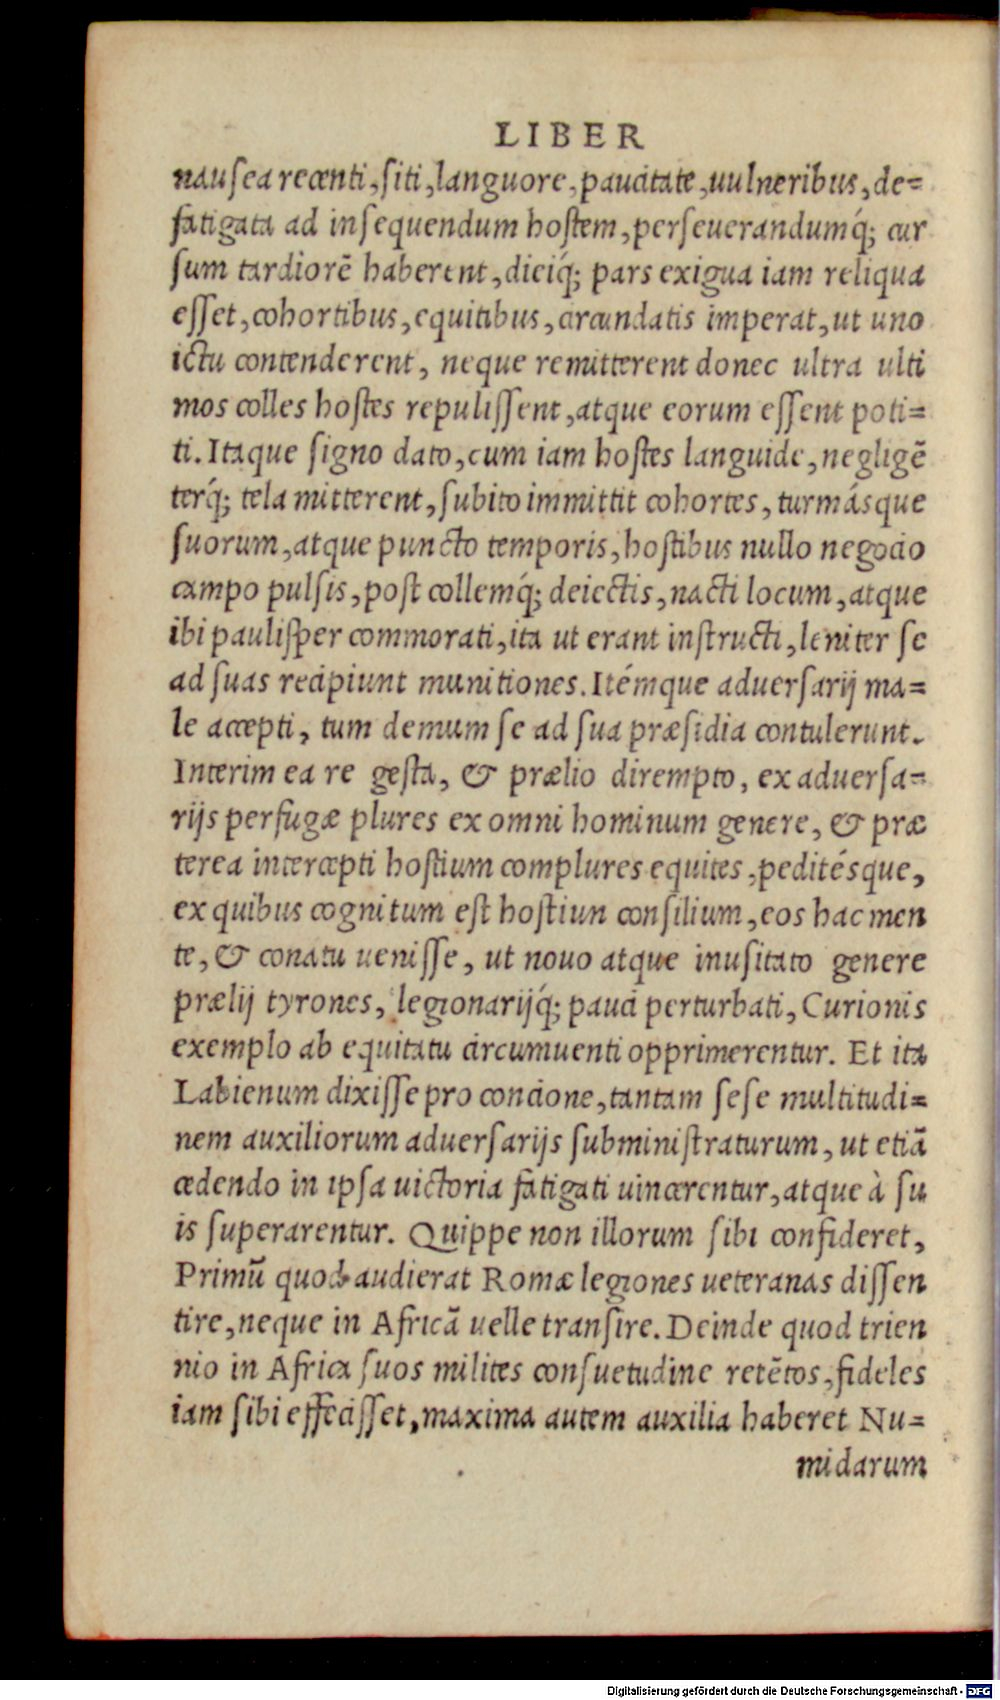 LIBER
nausea recenti, siti, languore, paucitate, uulneribus, de=
fatigata ad insequendum hostem, perseuerandumq́; cur
sum tardiorē haberent, dieiq́; pars exigua iam reliqua
esset, cohortibus, equitibus, circundatis imperat, ut uno
ictu contenderent, neque remitterent donec ultra ulti
mos colles hostes repulissent, atque eorum essent poti=
ti. Itaque signo dato, cum iam hostes languide, negligē
terq́; tela mitterent, subito immittit cohortes, turmásque
suorum, atque puncto temporis, hostibus nullo negocio
campo pulsis, post collemq́; deiectis, nacti locum, atque
ibi paulisper commorati, ita ut erant instructi, leniter se
ad suas recipiunt munitiones. Itémque aduersarij ma=
le accepti, tum demum se ad sua præsidia contulerunt.
Interim ea re gesta, & prælio dirempto, ex aduersa=
rijs perfugæ plures ex omni hominum genere, & præ
terea intercepti hostium complures equites, peditésque,
ex quibus cognitum est hostiun consilium, eos hac men
te, & conatu uenisse, ut nouo atque inusitato genere
prælij tyrones, legionarijq́; pauci perturbati, Curionis
exemplo ab equitatu circumuenti opprimerentur. Et ita
Labienum dixisse pro concione, tantam sese multitudi=
nem auxiliorum aduersarijs subministraturum, ut etiā
cædendo in ipsa uictoria fatigati uincerentur, atque à su
is superarentur. Quippe non illorum sibi confideret,
Primū quod audierat Romæ legiones ueteranas dissen
tire, neque in Africā uelle transire. Deinde quod trien
nio in Africa suos milites consuetudine retētos, fideles
iam sibi effecisset, maxima autem auxilia haberet Nu=
midarum
Digitalisierung gefördert durch die Deutsche Forschungsgemeinschaft - DFG